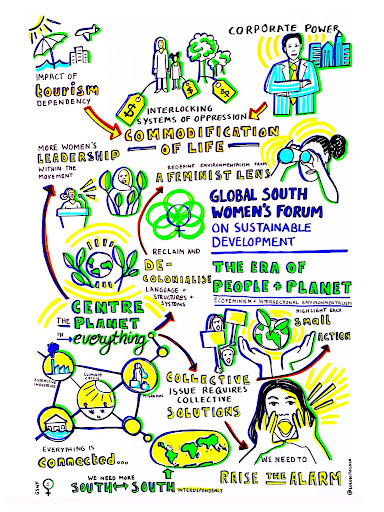 CORPORATE POWER
IMPACT OF
tourism
DEPENDENCY
$
$
$
INTERLOCKING
SYSTEMS OF OPPRESSION
COMMODIFICATION
OF LIFE
MORE WOMEN'S
LEADERSHIP
WITHIN THE
MOVEMENT
ENVIRONMENTALISM FROM
A FEMINIST LENS
GLOBAL SOUTH
WOMEN'S FORUM
ON SUSTAINABLE
DEVELOPMENT
RECLAIM AND
DE-
COLONIALISE
LANGUAGE +
STRUCTURES +
SYSTEMS
THE ERA OF
PEOPLE + PLANET
ECOFEMINISM + INTERSECTIONAL ENVIRONMENTALISM
HIGHLIGHT EACH
small
ACTION
CENTRE
THE PLANET
IN everything?
EXTRACTIVE
INDUSTRIES
CLIMATE
CRISIS
MIGRATION
COLLECTIVE
ISSUE REQUIRES
COLLECTIVE
SOLUTIONS
EVERYTHING IS
connected...
WE NEED MORE
SOUTH ↔ SOUTH
INTERDEPENDENCY
WE NEED TO
RAISE THE ALARM
GSWF